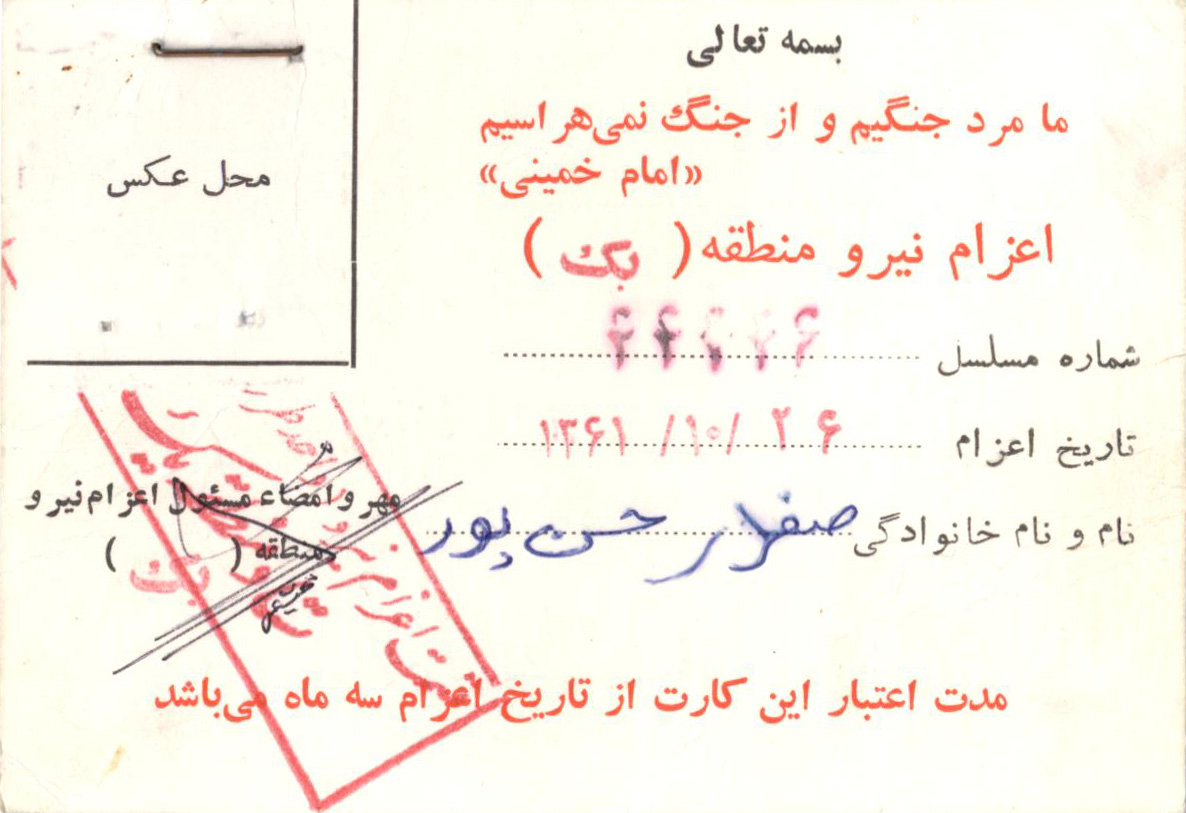 بسمه تعالی
ما مرد جنگیم و از جنگ نمی‌هراسیم
«امام خمینی»
اعزام نیرو منطقه ( یک )
شماره مسلسل
تاریخ اعزام ۲۶ /۱۰/ ۱۳۶۱
نام و نام خانوادگی صفر حسن پور
محل عکس
مهر و امضاء مسئول اعزام نیرو
منطقه ( یک )
مدت اعتبار این کارت از تاریخ اعزام سه ماه می‌باشد